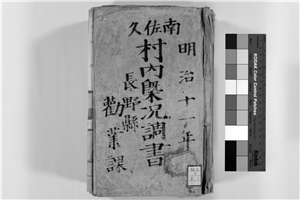 南佐久
明治十一年
村内概況調書
長野縣
勸業課
KODAK Color Control Patches